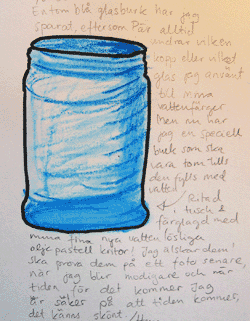 En tom blå glasburk har jag
sparat, eftersom Pär alltid
undrar vilken
kopp eller vilket
glas jag använt
till mina
vattenfärger
Men nu har
jag en speciell
burk som ska
vara tom tills
den fylls med
vatten!
Ritad
i tusch &
färglagd med
mina fina nya vattenlösliga
oljepastellkritor! Jag älskar dem!
ska prova dem på ett foto senare,
när jag blir modigare och när
tiden för det kommer. Jag
är säker på att tiden kommer,
det känns skönt.